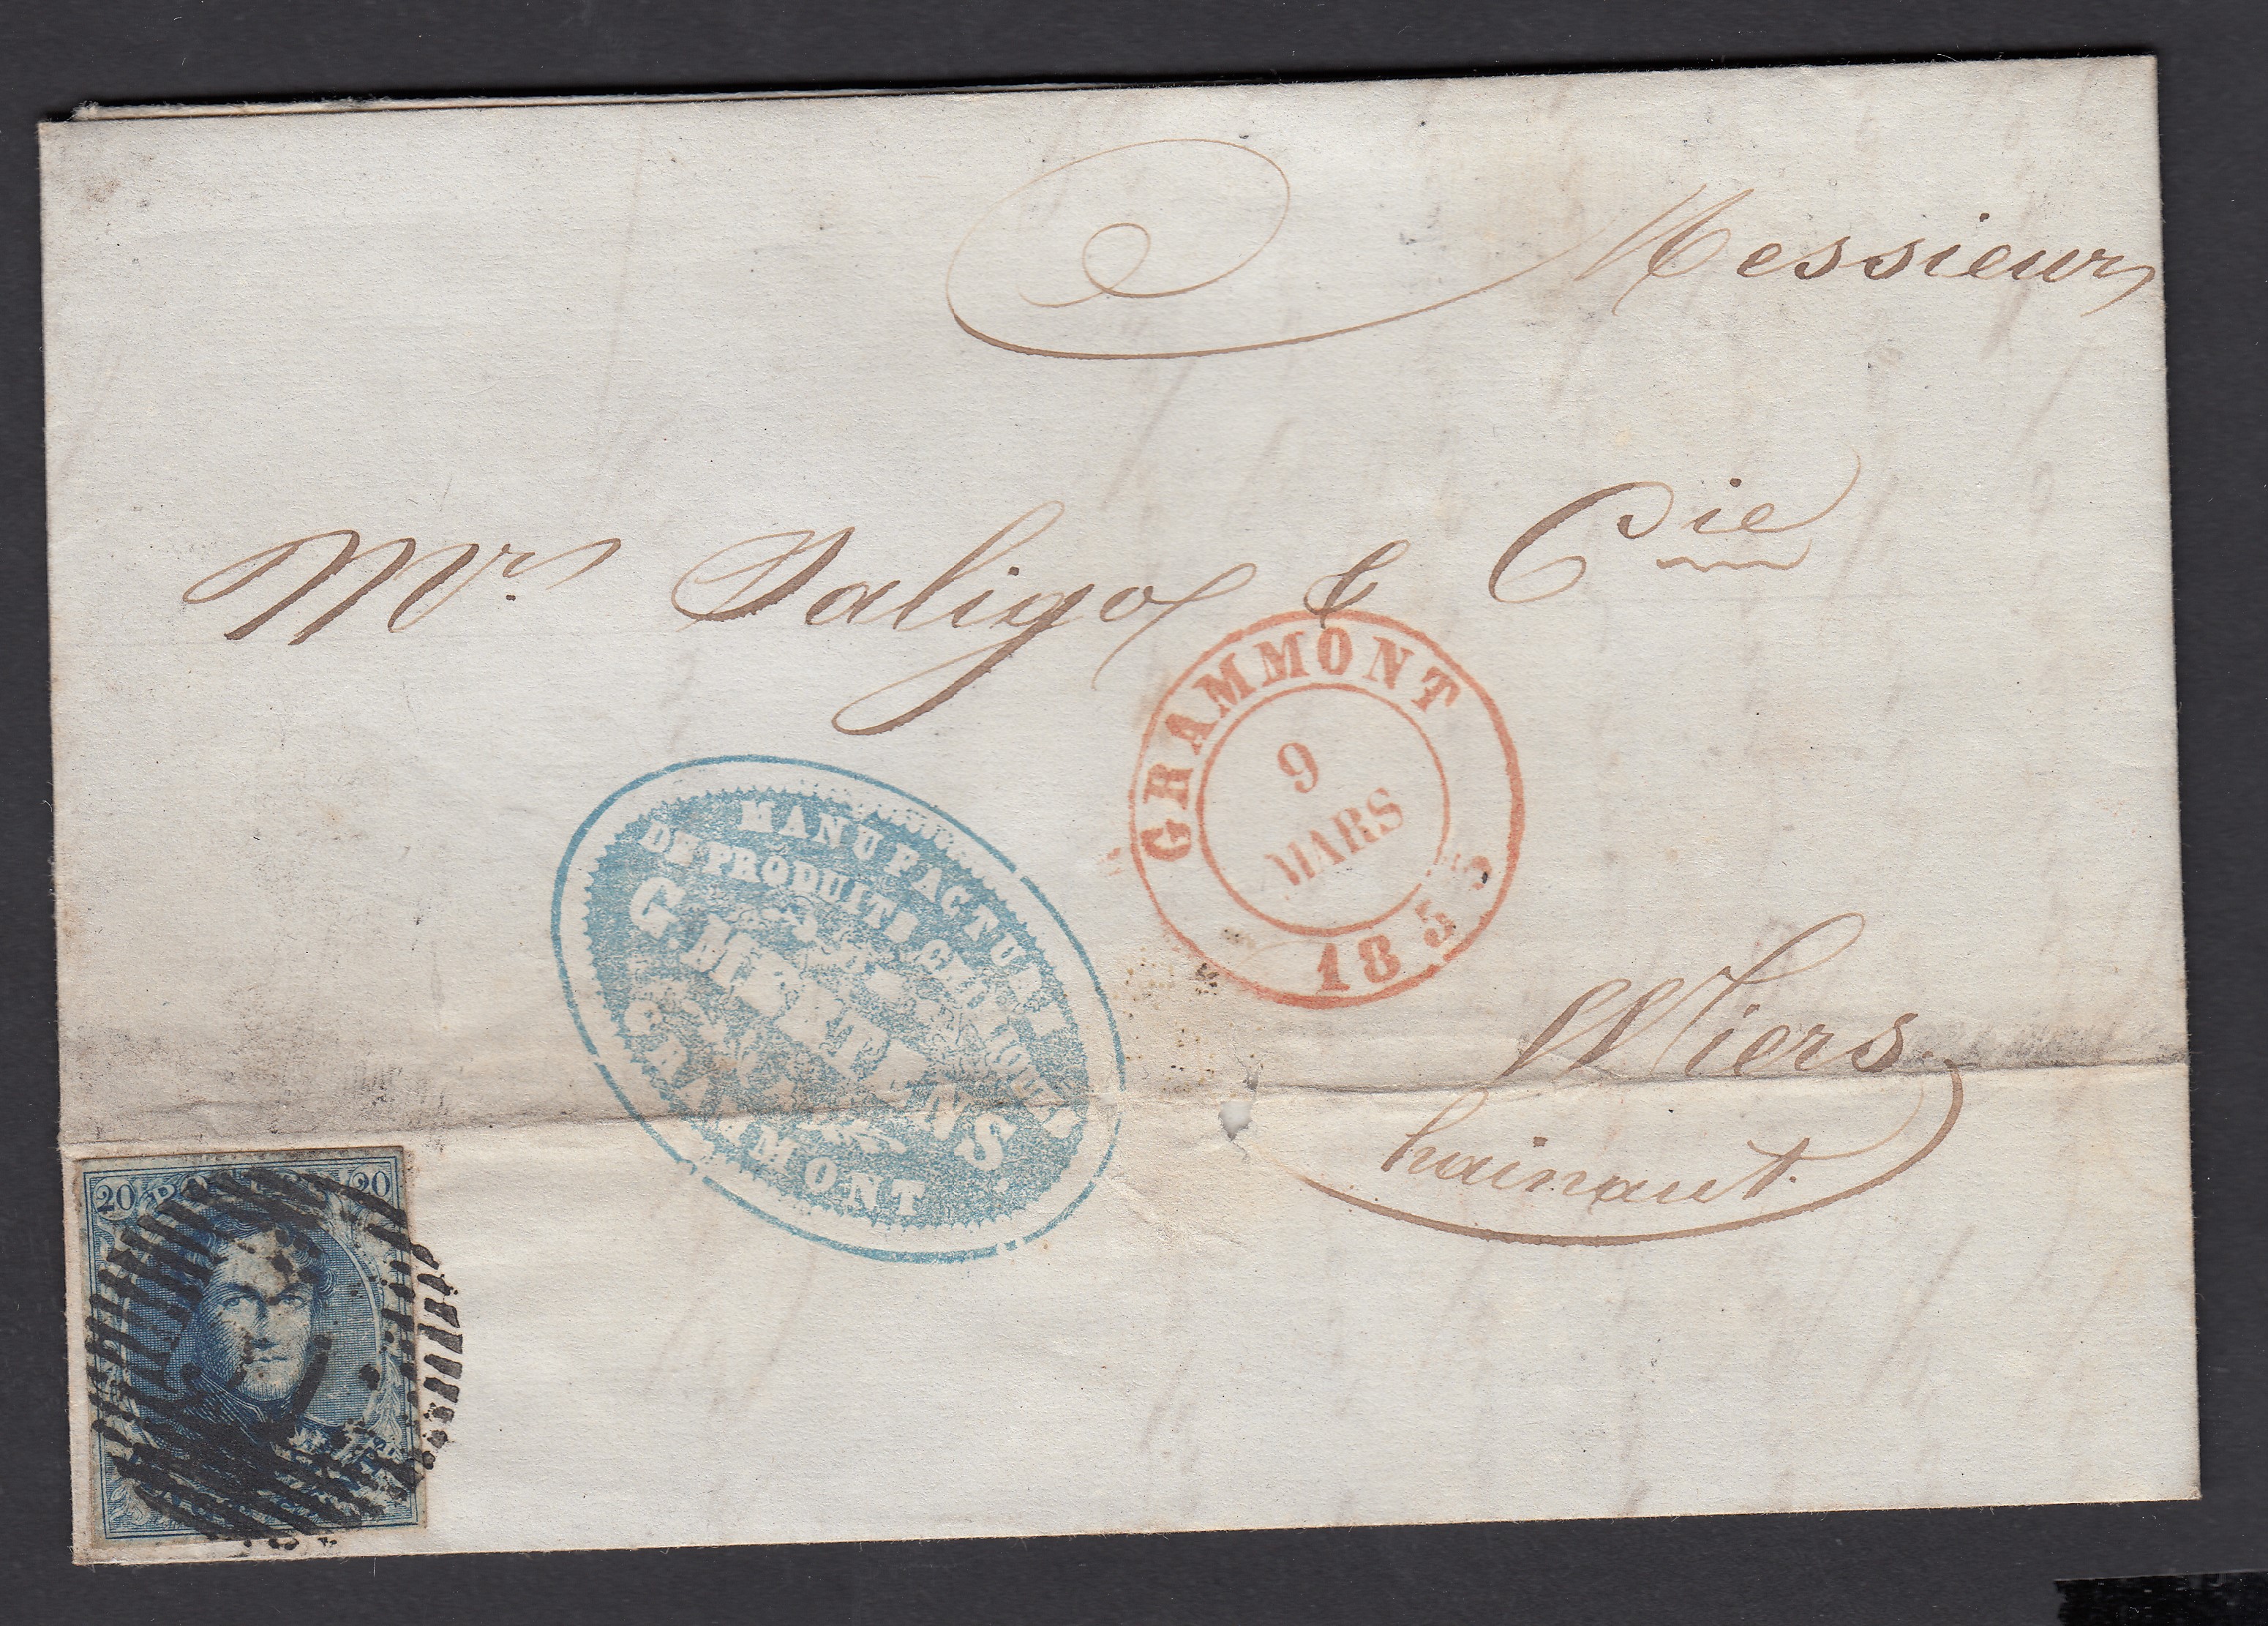 Messieurs
Mrs. Saligo & Cie
GRAMMONT
9
MARS
185
MANUFACTURE
DE PRODUITS CHIMIQUES
G. MERTENS
A
GRAMMONT
Wiers
hainaut.
20 POSTES 20